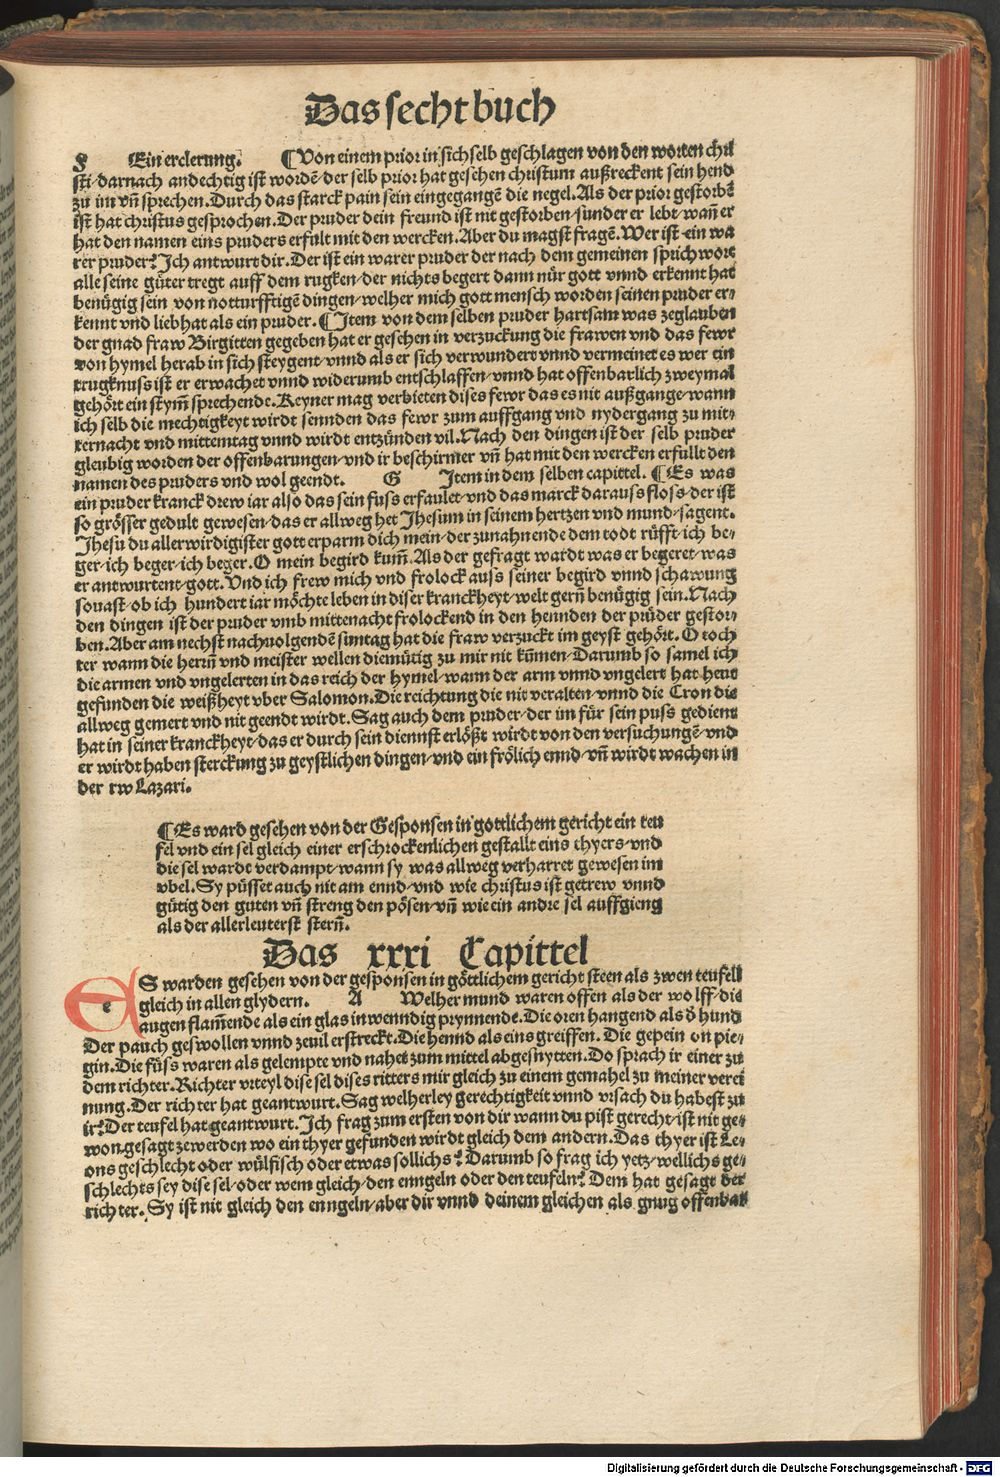 Das secht buch
F Ein erclerung. ¶ Von einem prior in sich selb geschlagen von den worten chri
sti/darnach andechtig ist wordē/der selb prior hat gesehen christum außreckent sein hend
zu im vn̄ sprechen. Durch das starck pain sein eingegangē die negel. Als der prior gestorbē
ist hat christus gesprochen. Der pruder dein freund ist nit gestorben/sunder er lebt/wan̄ er
hat den namen eins pruders erfült mit den wercken. Aber du magst fragē. Wer ist ein wa
rer pruder? Ich antwurt dir. Der ist ein warer pruder der nach dem gemeinen sprichwort
alle seine güter tregt auff dem rugken/der nichts begert dann nür gott vnnd erkennt hat
benügig sein von notturfftigē dingen/welher mich gott mensch worden seinen pruder er⸗
kennt vnd liebhat als ein pruder. ¶ Item von dem selben pruder hartsam was zeglauben
der gnad fraw Birgitten gegeben hat er gesehen in verzuckung die frawen vnd das fewr
von hymel herab in sich steygent/vnnd als er sich verwundert vnnd vermeinet es wer ein
trugknuss ist er erwachet vnnd widerumb entschlaffen/vnnd hat offenbarlich zweymal
gehört ein stym̄ sprechende. Keyner mag verbieten dises fewr das es nit außgange/wann
ich selb die mechtigkeyt wirdt sennden das fewr zum auffgang vnd nydergang zu mit⸗
ternacht vnd mittemtag vnnd wirdt entzünden vil. Nach den dingen ist der selb pruder
gleubig worden der offenbarungen/vnd ir beschirmer vn̄ hat mit den wercken erfullt den
namen des pruders vnd wol geendt. G Item in dem selben capittel. ¶ Es was
ein pruder kranck drew iar also das sein fuss erfaulet/vnd das marck darauss floss/der ist
so grösser gedult gewesen/das er allweg het Jhesum in seinem hertzen vnd mund/sagent.
Jhesu du allerwirdigister gott erparm dich mein/der zunahnende dem todt rüfft/ich be⸗
ger/ich beger/ich beger. O mein begird kum̄. Als der gefragt wardt was er begeret/was
er antwurtent/gott. Vnd ich frew mich vnd frolock auss seiner begird vnnd schawung
souast/ob ich hundert iar möchte leben in diser kranckheyt/welt gern̄ benügig sein. Nach
den dingen ist der pruder vmb mittenacht frolockend in den hennden der prüder gestor⸗
ben. Aber am nechst nachuolgendē suntag hat die fraw verzuckt im geyst gehört. O toch
ter wann die herrn̄ vnd meister wellen diemütig zu mir nit kum̄en/Darumb so samel ich
die armen vnd vngelerten in das reich der hymel/wann der arm vnnd vngelert hat heut
gefunden die weißheyt vber Salomon. Die reichtung die nit veralten/vnnd die Cron die
allweg gemert vnd nit geendt wirdt. Sag auch dem pruder/der im für sein puss gedient
hat in seiner kranckheyt/das er durch sein diennst erlößt wirdt von den versuchungē/vnd
er wirdt haben sterckung zu geystlichen dingen/vnd ein frölich ennd/vn̄ wirdt wachen in
der rw Lazari.
¶ Es ward gesehen von der Gesponsen in gottlichem gericht ein teu
fel vnd ein sel gleich einer erschrockenlichen gestallt eins thyers/vnd
die sel wardt verdampt/wann sy was allweg verharret gewesen im
vbel. Sy püsset auch nit am ennd/vnd wie christus ist getrew vnnd
gütig den guten vn̄ streng den pösen/vn̄ wie ein andre sel auffgieng
als der allerleuterst stern̄.
Das xxxi Capittel
ES warden gesehen von der gesponsen in göttlichem gericht steen als zwen teufell
gleich in allen glydern. A Welher mund waren offen als der wolff/die
augen flam̄ende als ein glas inwenndig prynnende. Die oren hangend als d' hund
Der pauch geswollen vnnd zeuil erstreckt. Die hennd als eins greiffen. Die gepein on pie⸗
gin. Die füss waren als gelempte vnd nahet zum mittel abgesnytten. Do sprach ir einer zu
dem richter. Richter vrteyl dise sel dises ritters mir gleich zu einem gemahel zu meiner verei
nung. Der richter hat geantwurt. Sag welherley gerechtigkeit vnnd vrsach du habest zu
ir? Der teufel hat geantwurt. Ich frag zum ersten von dir wann du pist gerecht/ist nit ge⸗
won gesagt zewerden wo ein thyer gefunden wirdt gleich dem andern. Das thyer ist Le⸗
ons geschlecht oder wülfisch oder etwas sollichs? Darumb so frag ich yetz/wellichs ge⸗
schlechts sey dise sel/oder wem gleich/den enngeln oder den teufeln? Dem hat gesagt der
richter. Sy ist nit gleich den enngeln/aber dir vnnd deinem gleichen als gnug offenbar
Digitalisierung gefördert durch die Deutsche Forschungsgemeinschaft - DFG